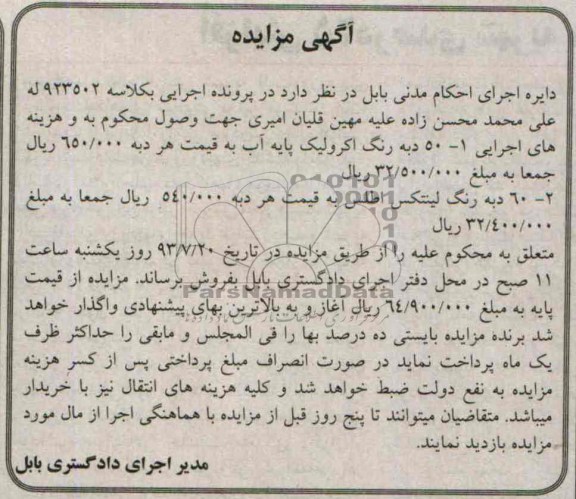 آگهی مزایده
دایره اجرای احکام مدنی بابل در نظر دارد در پرونده اجرایی بکلاسه ۹۲۳۵۰۲ له
علی محمد محسن زاده علیه مهین قلیان امیری جهت وصول محکوم به و هزینه
های اجرایی ۱- ۵۰ دبه رنگ اکرولیک پایه آب به قیمت هر دبه ۶۵۰/۰۰۰ ریال
جمعا به مبلغ ۳۲/۵۰۰/۰۰۰ ریال
۲- ۶۰ دبه رنگ لینتکس اطلس به قیمت هر دبه ۵۴۰/۰۰۰ ریال جمعا به مبلغ
۳۲/۴۰۰/۰۰۰ ریال
متعلق به محکوم علیه را از طریق مزایده در تاریخ ۹۳/۷/۲۰ روز یکشنبه ساعت
۱۱ صبح در محل دفتر اجرای دادگستری بابل بفروش برساند. مزایده از قیمت
ParsNamadData
پایه به مبلغ ۶۴/۹۰۰/۰۰۰ ریال آغاز و به بالاترین بهای پیشنهادی واگذار خواهد
شد برنده مزایده بایستی ده درصد بها را فی المجلس و مابقی را حداکثر ظرف
یک ماه پرداخت نماید در صورت انصراف مبلغ پرداختی پس از کسر هزینه
مزایده به نفع دولت ضبط خواهد شد و کلیه هزینه های انتقال نیز با خریدار
میباشد. متقاضیان میتوانند تا پنج روز قبل از مزایده با هماهنگی اجرا از مال مورد
مزایده بازدید نمایند.
مدیر اجرای دادگستری بابل